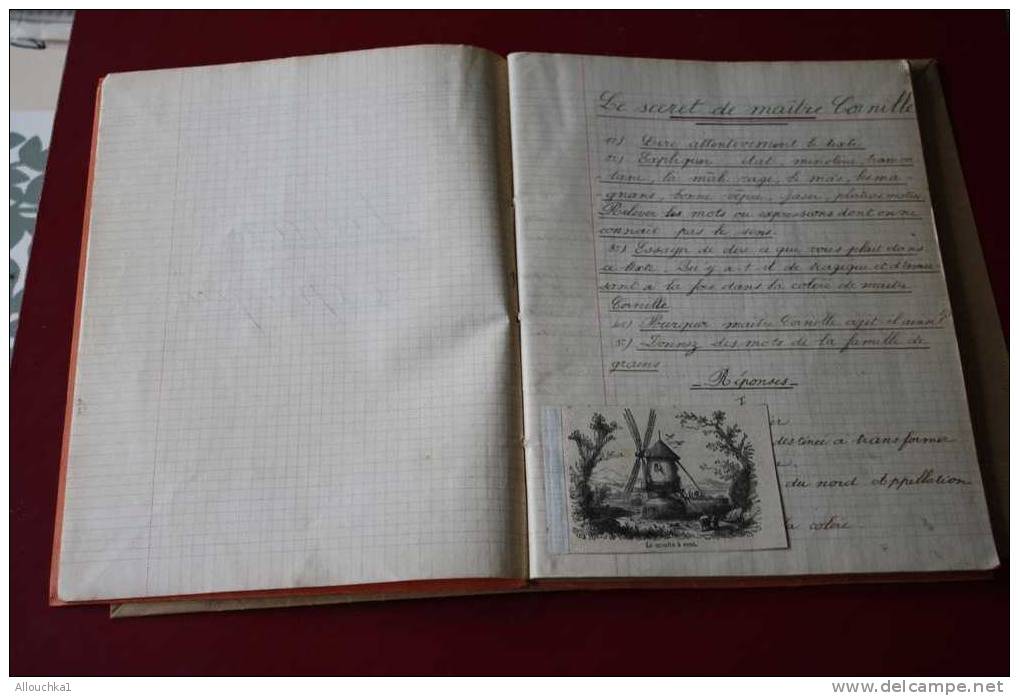 Le secret de maître Cornille
1°) Lire attentivement le texte
2°) Expliquer état, minotier, tramon
tane, la rage, le mas, les ma-
gnans, bonne jaser,
Relever les mots ou expressions dont on ne
connaît pas le sens.
3°) Essayer de dire ce que vous plaît dans
ce texte. Qu'y a t il de tragique et d'amu
sant à la fois dans la colère de maître
Cornille
4°) Pourquoi maître Cornille agit il ainsi?
5°) Donnez des mots de la famille de
grains
Réponses
I
destinée à transformer
du nord Appellation
la colère
Le moulin à vent.
Allouchka1
www.delcampe.net